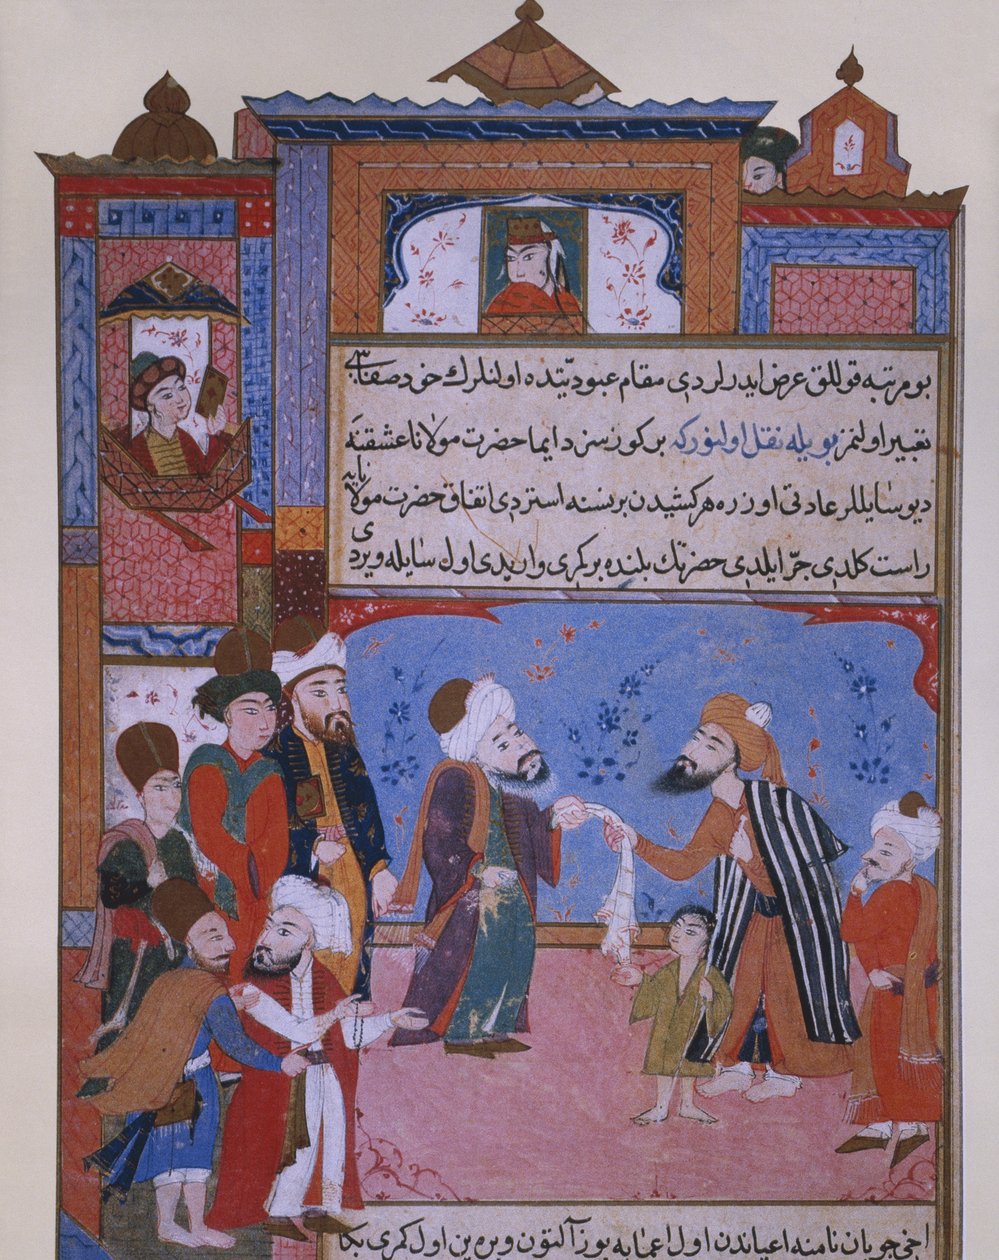 بو مرتبه قوللق عرض ایدرلردی مقام عبودیتده اولنلرك خود صفاسی
تعبیر اولنمز بویله نقل اولنور كه بر كور سز دایما حضرت مولانا عشقنه
دیو سایللر عادتی اوزره هر كشیدن بر نسنه استردی اتفاق حضرت مولانایه
راست كلدی جرّ ایلدی حضرتك بلنده بر كمری وار یدی اول سایله ویردی
اخی چوبان نامنه اعیاندن اول اعمایه یوز آلتون ویره ین اول كمری